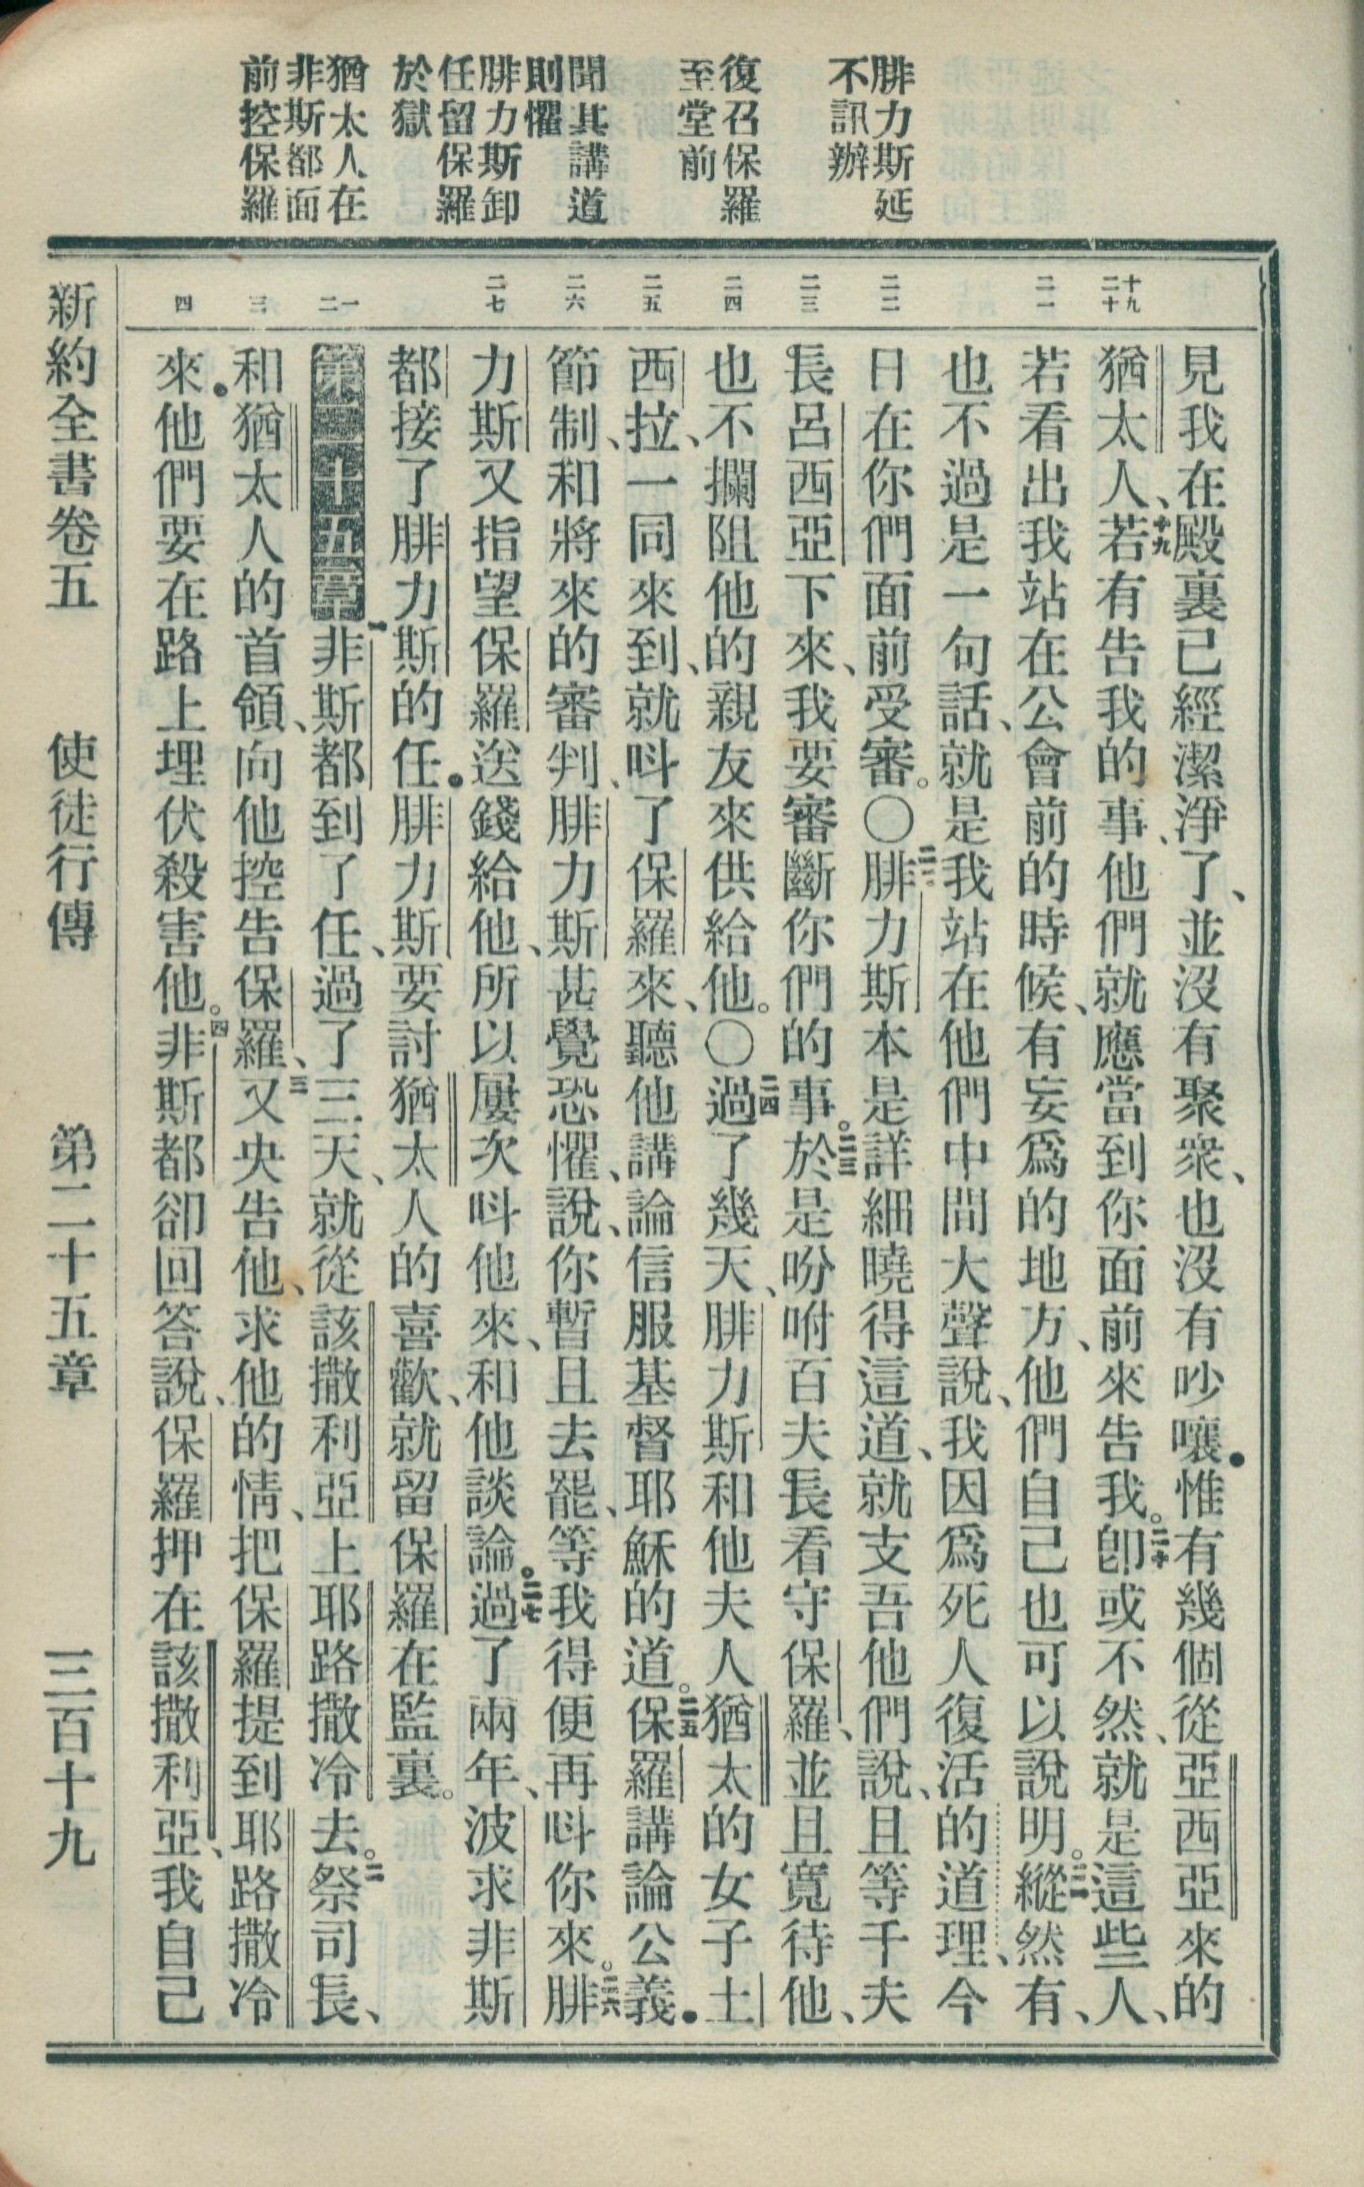 腓力斯延
不訊辦
復召保羅
至堂前
聞其講道
則懼
腓力斯卸
任留保羅
於獄
猶太人在
非斯都面
前控保羅
十九
二十
二一
二二
二三
二四
二五
二六
二七
一
二
三
四
見我在殿裏已經潔淨了、並沒有聚衆、也沒有吵嚷．惟有幾個從亞西亞來的
猶太人、十九若有告我的事、他們就應當到你面前來告我。二十卽或不然、就是這些人、
若看出我站在公會前的時候、有妄爲的地方、他們自己也可以說明。二一縱然有、
也不過是一句話、就是我站在他們中間大聲說、我因爲死人復活的道理、今
日在你們面前受審。〇二二腓力斯本是詳細曉得這道、就支吾他們說、且等千夫
長呂西亞下來、我要審斷你們的事。二三於是吩咐百夫長看守保羅、並且寬待他、
也不攔阻他的親友來供給他。〇二四過了幾天、腓力斯和他夫人猶太的女子土
西拉、一同來到、就呌了保羅來、聽他講論信服基督耶穌的道。二五保羅講論公義．
節制、和將來的審判、腓力斯甚覺恐懼、說、你暫且去罷、等我得便再呌你來。二六腓
力斯又指望保羅送錢給他、所以屢次呌他來、和他談論。二七過了兩年、波求非斯
都接了腓力斯的任．腓力斯要討猶太人的喜歡、就留保羅在監裏。
第二十五章一非斯都到了任、過了三天、就從該撒利亞上耶路撒冷去。二祭司長、
和猶太人的首領、向他控告保羅、三又央告他、求他的情、把保羅提到耶路撒冷
來．他們要在路上埋伏殺害他。四非斯都卻回答說、保羅押在該撒利亞、我自己
新約全書卷五　使徒行傳　第二十五章　三百十九